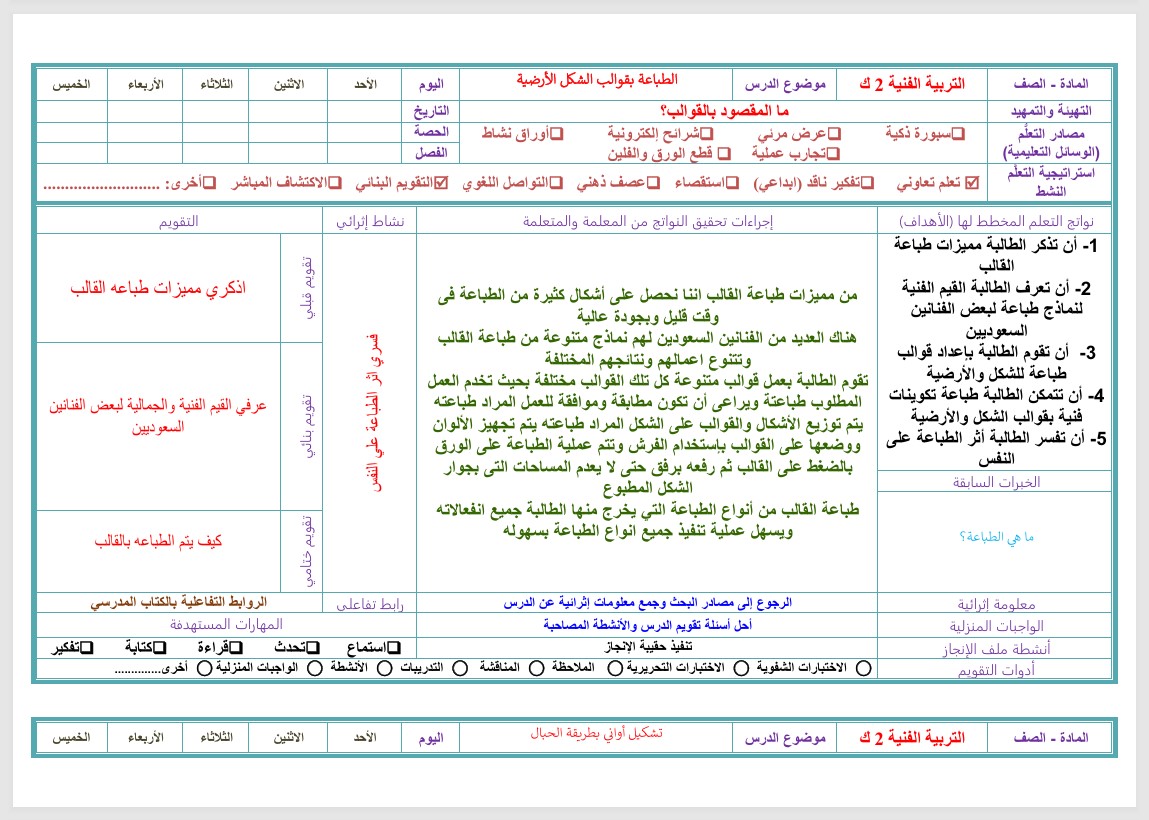 المادة - الصف
التربية الفنية 2 ك
موضوع الدرس
الطباعة بقوالب الشكل الأرضية
اليوم
الأحد
الاثنين
الثلاثاء
الأربعاء
الخميس
التهيئة والتمهيد
ما المقصود بالقوالب؟
التاريخ
مصادر التعلُّم
(الوسائل التعليمية)
❑سبورة ذكية ❑عرض مرئي ❑شرائح إلكترونية ❑أوراق نشاط
❑تجارب عملية ❑ قطع الورق والفلين
الحصة
الفصل
استراتيجية التعلّم
النشط
☑ تعلم تعاوني ❑تفكير ناقد (ابداعي) ❑استقصاء ❑عصف ذهني ❑التواصل اللغوي ☑التقويم البنائي ❑الاكتشاف المباشر ❑أخرى: ...........................
نواتج التعلم المخطط لها (الأهداف)
إجراءات تحقيق النواتج من المعلمة والمتعلمة
نشاط إثرائي
التقويم
1- أن تذكر الطالبة مميزات طباعة
القالب
2- أن تعرف الطالبة القيم الفنية
لنماذج طباعة لبعض الفنانين
السعوديين
3- أن تقوم الطالبة بإعداد قوالب
طباعة للشكل والأرضية
4- أن تتمكن الطالبة طباعة تكوينات
فنية بقوالب الشكل والأرضية
5- أن تفسر الطالبة أثر الطباعة على
النفس
الخبرات السابقة
ما هي الطباعة؟
من مميزات طباعة القالب اننا نحصل على أشكال كثيرة من الطباعة فى
وقت قليل وبجودة عالية
هناك العديد من الفنانين السعودين لهم نماذج متنوعة من طباعة القالب
وتتنوع اعمالهم ونتائجهم المختلفة
تقوم الطالبة بعمل قوالب متنوعة كل تلك القوالب مختلفة بحيث تخدم العمل
المطلوب طباعتة ويراعى أن تكون مطابقة وموافقة للعمل المراد طباعته
يتم توزيع الأشكال والقوالب على الشكل المراد طباعته يتم تجهيز الألوان
ووضعها على القوالب بإستخدام الفرش وتتم عملية الطباعة على الورق
بالضغط على القالب ثم رفعه برفق حتى لا يعدم المساحات التى بجوار
الشكل المطبوع
طباعة القالب من أنواع الطباعة التي يخرج منها الطالبة جميع انفعالاته
ويسهل عملية تنفيذ جميع انواع الطباعة بسهوله
فسري اثر الطباعة علي النفس
تقويم قبلي
اذكري مميزات طباعه القالب
تقويم بنائي
عرفي القيم الفنية والجمالية لبعض الفنانين
السعوديين
تقويم ختامي
كيف يتم الطباعه بالقالب
معلومة إثرائية
الرجوع إلى مصادر البحث وجمع معلومات إثرائية عن الدرس
رابط تفاعلى
الروابط التفاعلية بالكتاب المدرسي
الواجبات المنزلية
أحل أسئلة تقويم الدرس والأنشطة المصاحبة
المهارات المستهدفة
أنشطة ملف الإنجاز
تنفيذ حقيبة الإنجاز
❑استماع ❑تحدث ❑قراءة ❑كتابة ❑تفكير
أدوات التقويم
○ الاختبارات الشفوية ○ الاختبارات التحريرية ○ الملاحظة ○ المناقشة ○ التدريبات ○ الأنشطة ○ الواجبات المنزلية ○ أخرى..............
المادة - الصف
التربية الفنية 2 ك
موضوع الدرس
تشكيل أواني بطريقة الحبال
اليوم
الأحد
الاثنين
الثلاثاء
الأربعاء
الخميس